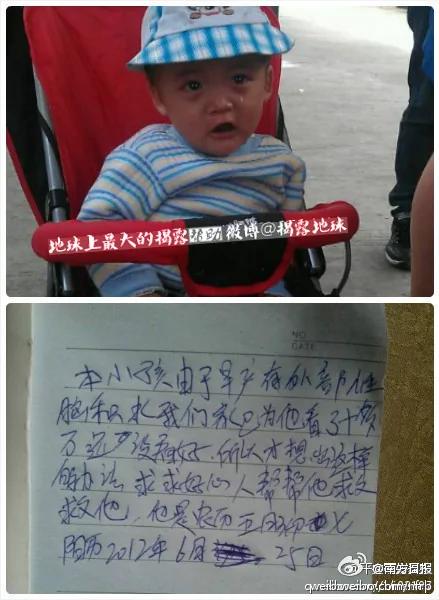 地球上最大的揭露 微博@揭露地球
NO
DATE
本小孩由于早产存外部性
脑积水我们家已为他看了十几
万还是没有好.所以才想出这样
的办法 求求好心人帮帮他 救
救他.他是农历五月初七
阳历2012年6月25日